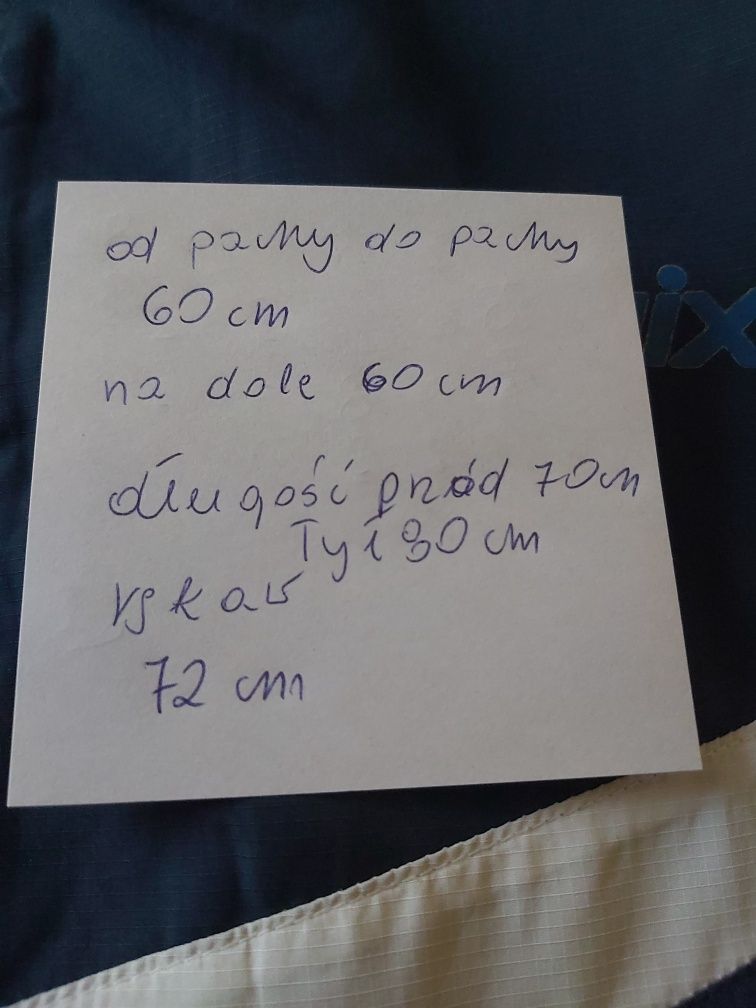 od pachy do pachy
60 cm
na dole 60 cm
długość przód 70cm
Tył 90 cm
rękaw
72 cm
ix